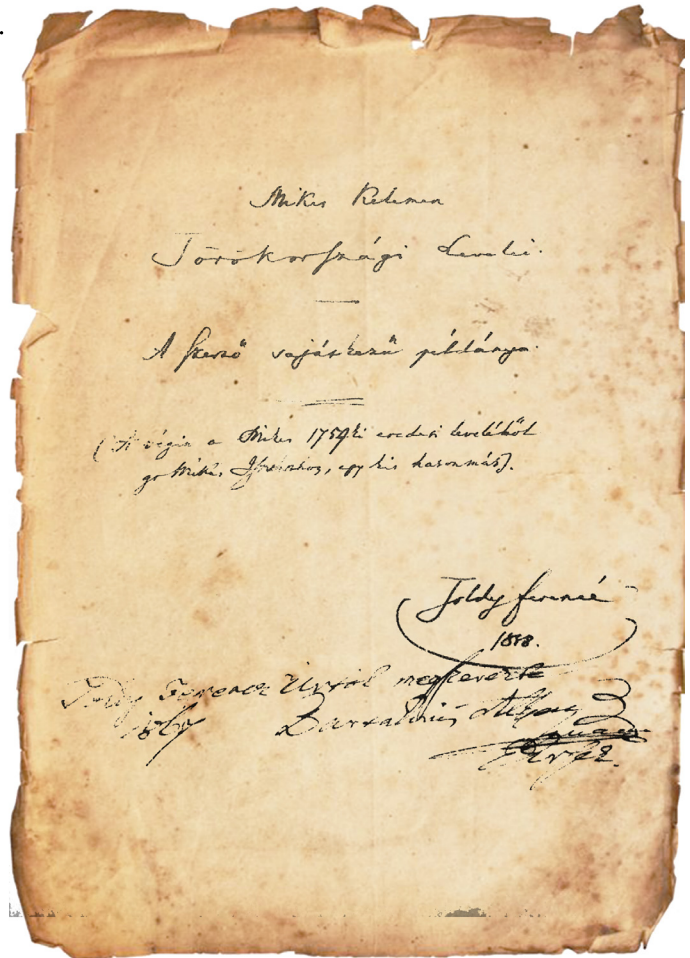 Mikes Kelemen
Törökországi Levelei.
A szerző sajátkezű példánya.
(A végin a Mikes 1759ki eredeti leveléből
gr Mikes Istvánhoz, egy kis hasonmás).
Toldy Ferencé
1858.
Toldy Ferencz Úrtól megvevette